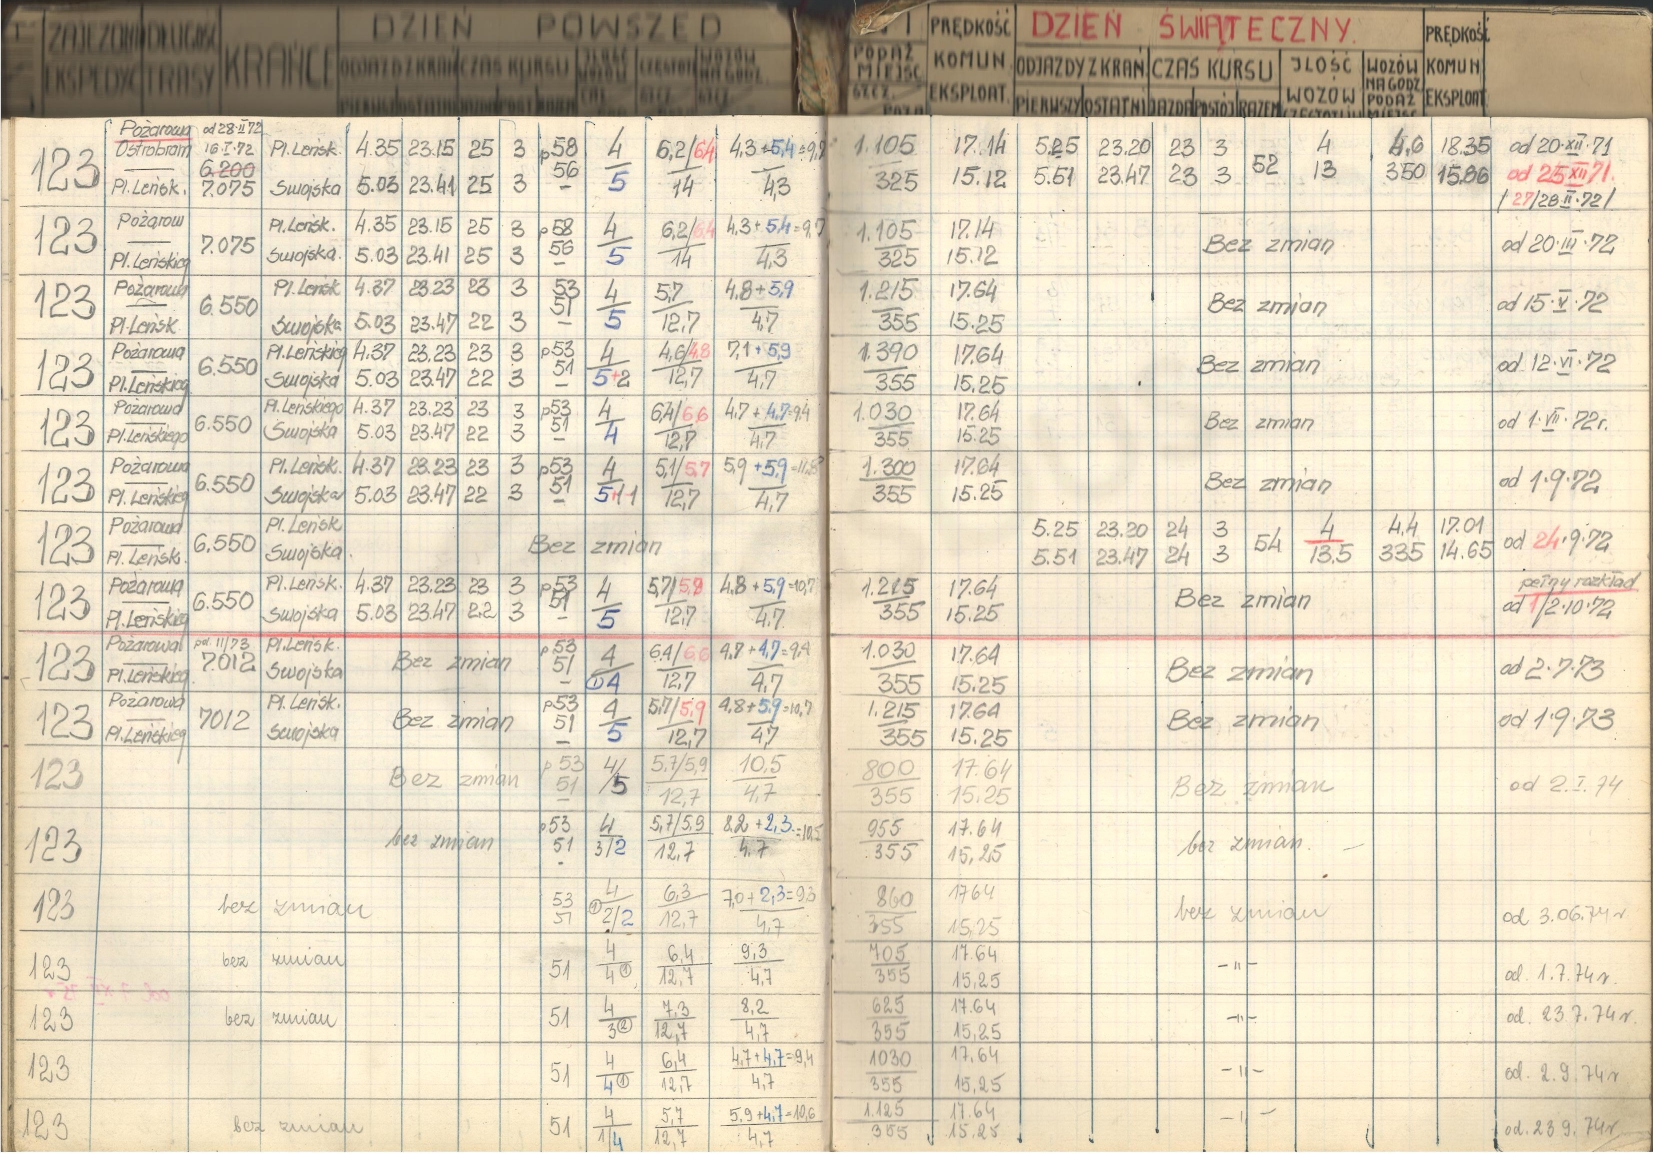 ZAJEZDNI DŁUGOŚĆ KRAŃCE DZIEŃ POWSZED
EKSPEDYC TRASY ODJAZDY Z KRAŃ CZAS KURSU ILOŚĆ WOZÓW CZĘSTOTL WOZÓW NA GODZ.
PODAŻ MIEJSC PRĘDKOŚĆ KOMUN. EKSPLOAT. DZIEŃ ŚWIĄTECZNY. PRĘDKOŚĆ KOMUN EKSPLOAT.
ODJAZDY Z KRAŃ CZAS KURSU ILOŚĆ WOZÓW WOZÓW NA GODZ PODAŻ MIEJSC
PIERWSZY OSTATNI JAZDA POSTÓJ RAZEM CZĘSTOTLIW
Pożarowa od 28·II·72
123 Ostrobram 16·I·72 Pl. Leńsk. 4.35 23.15 25 3 p58 4 6,2/6,4 4,3+5,4=9,7 1.105 17.14 5.25 23.20 23 3 4 4,6 18.35 od 20·XII·71
6.200 56 52 od 25 XII 71.
Pl. Leńsk. 7.075 Swojska 5.03 23.41 25 3 – 5 14 4,3 325 15.12 5.51 23.47 23 3 13 350 15.86 /27/28·II·72/
123 Pożarow 7.075 Pl. Leńsk. 4.35 23.15 25 3 p58 4 6,2/6,4 4,3+5,4=9,7 1.105 17.14 Bez zmian od 20·III·72
Pl. Leńskieg Swojska. 5.03 23.41 25 3 56 – 5 14 4,3 325 15.12
123 Pożarowa 6.550 Pl. Leńsk 4.37 23.23 23 3 53 4 5,7 4,8+5,9 1.215 17.64 Bez zmian od 15·V·72
Pl. Leńsk Swojska 5.03 23.47 22 3 51 – 5 12,7 4,7 355 15.25
123 Pożarowa 6.550 Pl. Leńskieg 4.37 23.23 23 3 p53 4 4,6/4,8 7,1+5,9 1.390 17.64 Bez zmian od 12·VI·72
Pl. Leńskieg Swojska 5.03 23.47 22 3 51 – 5+2 12,7 4,7 355 15.25
123 Pożarowa 6.550 Pl. Leńskiego 4.37 23.23 23 3 p53 4 6,4/6,6 4,7+4,7=9,4 1.030 17.64 Bez zmian od 1·VII·72r.
Pl. Leńskiego Swojska 5.03 23.47 22 3 51 – 4 12,7 4,7 355 15.25
123 Pożarowa 6.550 Pl. Leńsk. 4.37 23.23 23 3 p53 4 5,1/5,7 5,9+5,9=11,8 1.300 17.64 Bez zmian od 1·9·72
Pl. Leńskieg Swojska 5.03 23.47 22 3 51 – 5+1 12,7 4,7 355 15.25
123 Pożarowa 6.550 Pl. Leńsk Bez zmian 5.25 23.20 24 3 54 4 4,4 17.01 od 24·9·72
Pl. Leńsk. Swojska. 5.51 23.47 24 3 13,5 335 14.65
123 Pożarowa 6.550 Pl. Leńsk. 4.37 23.23 23 3 p53 4 5,7/5,9 4,8+5,9=10,7 1.215 17.64 Bez zmian pełny rozkład
Pl. Leńskieg Swojska 5.03 23.47 22 3 51 – 5 12,7 4,7 355 15.25 od 1/2·10·72
123 Pożarowa pol. II/73 Pl. Leńsk. Bez zmian p53 4 6,4/6,6 4,7+4,7=9,4 1.030 17.64 Bez zmian od 2·7·73
Pl. Leńskieg 7012 Swojska 51 – ①4 12,7 4,7 355 15.25
123 Pożarowa 7012 Pl. Leńsk. Bez zmian p53 4 5,7/5,9 4,8+5,9=10,7 1.215 17.64 Bez zmian od 1·9·73
Pl. Leńskieg Swojska 51 – 5 12,7 4,7 355 15.25
123 Bez zmian p53 4/5 5,7/5,9 10,5 800 17.64 Bez zmian od 2·I·74
51 – 12,7 4,7 355 15.25
123 bez zmian p53 4 5,7/5,9 8,2+2,3=10,5 955 17.64 bez zmian. –
51 – 3/2 12,7 4,7 355 15,25
123 bez zmian 53 4 6,3 7,0+2,3=9,3 860 17 64 bez zmian od 3.06.74r
51 ①2/2 12,7 4,7 355 15,25
123 bez zmian 51 4 6,4 9,3 705 17.64 –"– od. 1.7.74r.
4① 12,7 4,7 355 15,25
123 bez zmian 51 4 7,3 8,2 625 17.64 –"– od. 23.7.74r.
3② 12,7 4,7 355 15,25
123 51 4 6,4 4,7+4,7=9,4 1030 17,64 –"– od. 2.9.74r
4① 12,7 4,7 355 15,25
123 bez zmian 51 4 5,7 5,9+4,7=10,6 1.125 17.64 –"– od. 23 9.74r
1/4 12,7 4,7 355 15.25